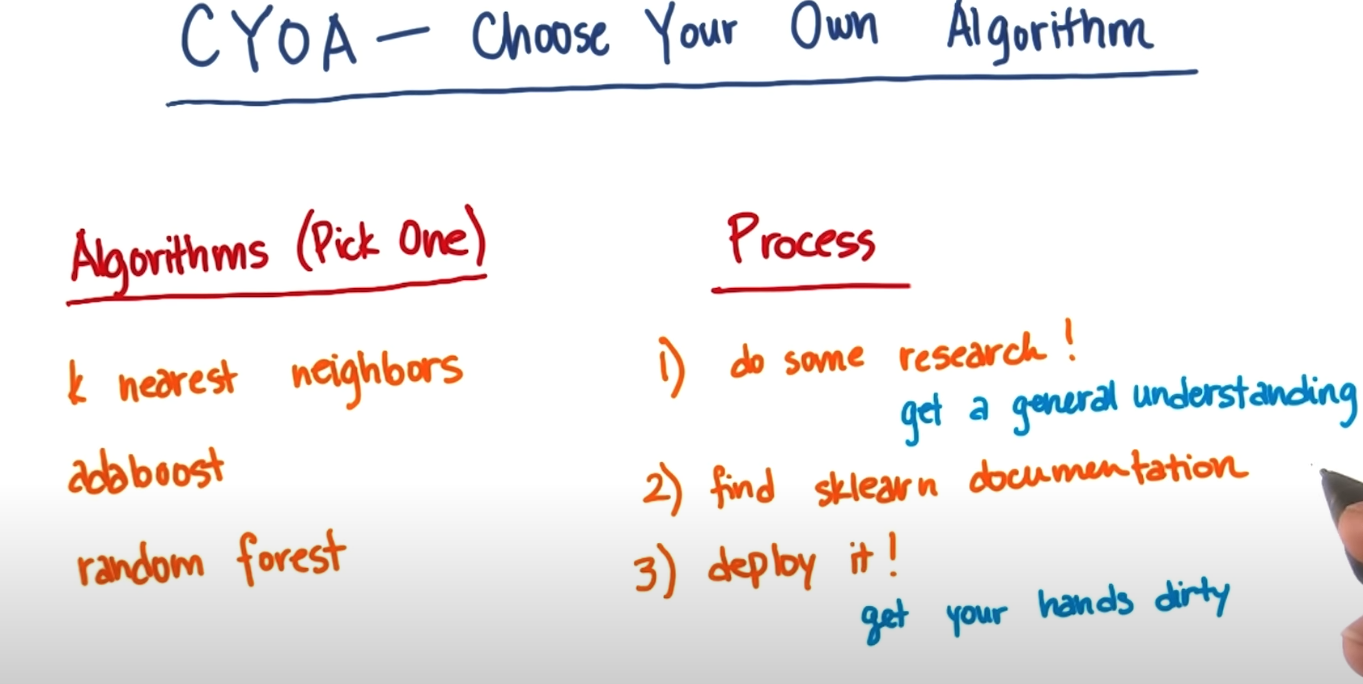 CYOA — Choose Your Own Algorithm
Algorithms (Pick One)
k nearest neighbors
adaboost
random forest
Process
1) do some research!
get a general understanding
2) find sklearn documentation
3) deploy it!
get your hands dirty